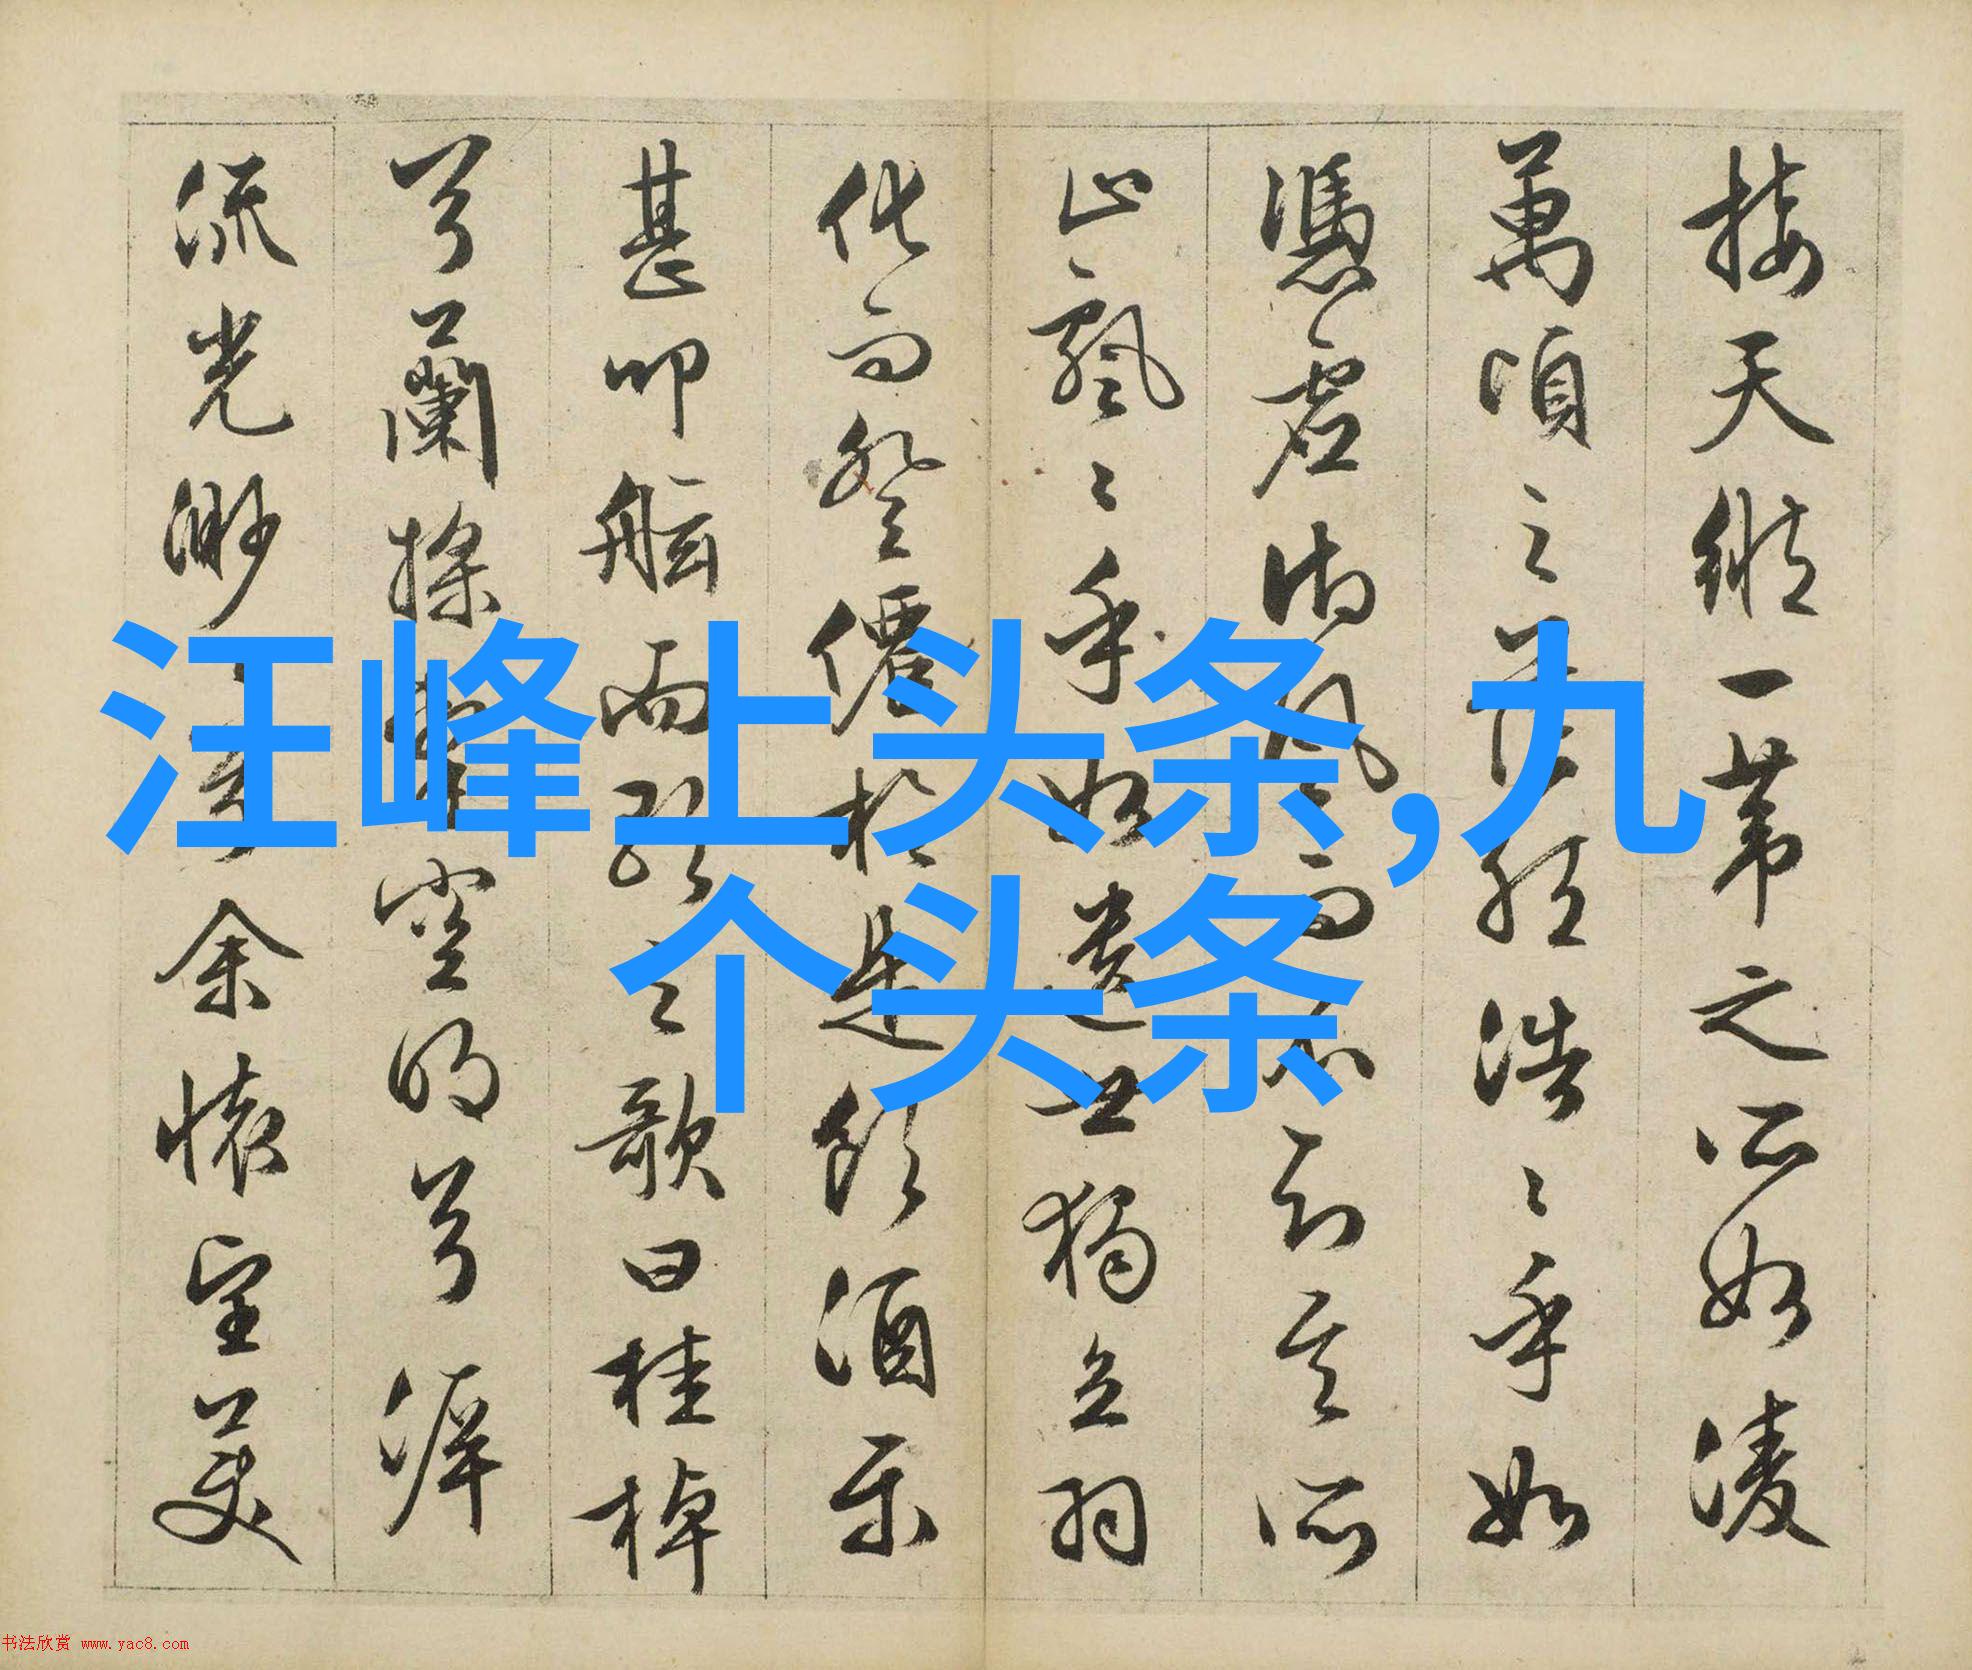 接天縱一葦之所如凌
萬頃之茫然浩〻乎如
憑虛御風而不知其所
止飄〻乎如遺世獨立羽
化而登僊於是飲酒樂
甚叩舷而歌之歌曰桂棹
兮蘭槳擊空明兮泝
流光渺〻兮余懷望美
汪峰上头条,九
个头条
书法欣赏 www.yac8.com